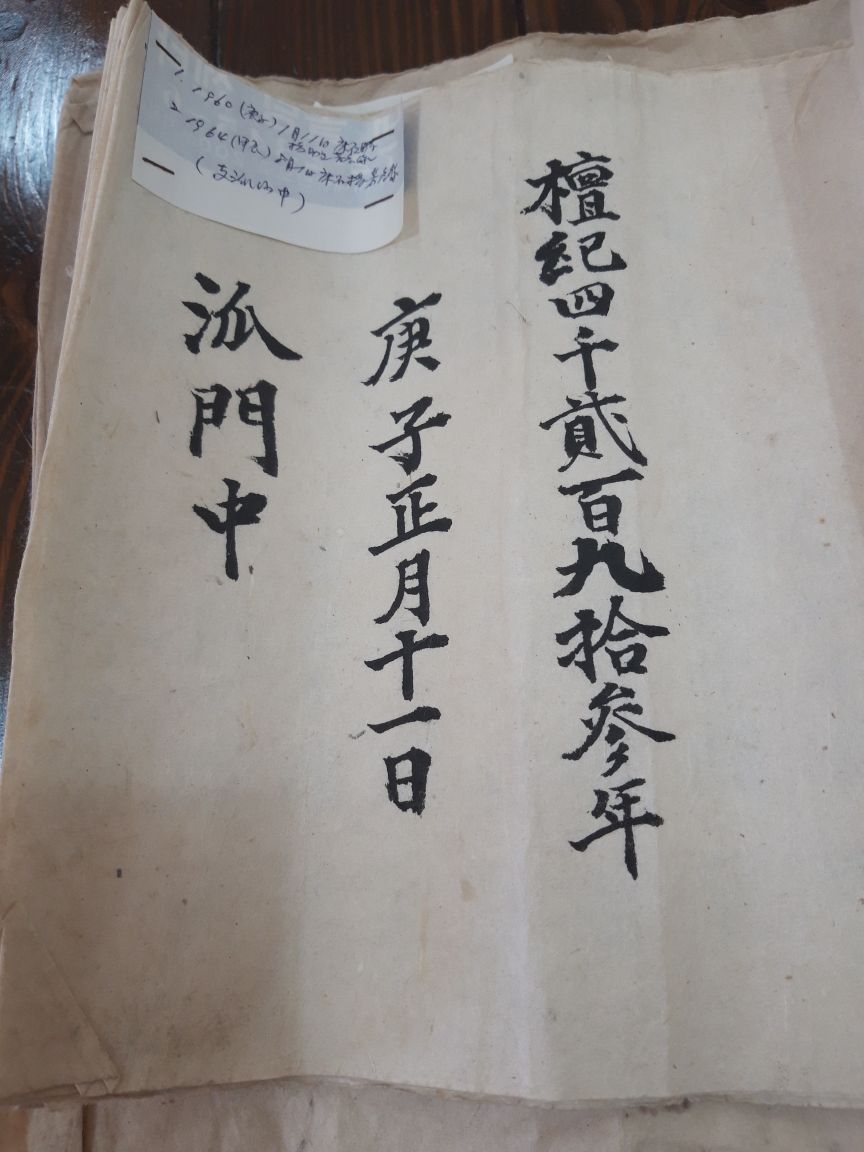 檀紀四千貳百九拾參年
庚子正月十一日
派門中
1. 1960(庚子) 1月11日
2. 1964(甲辰)
(支派門中)